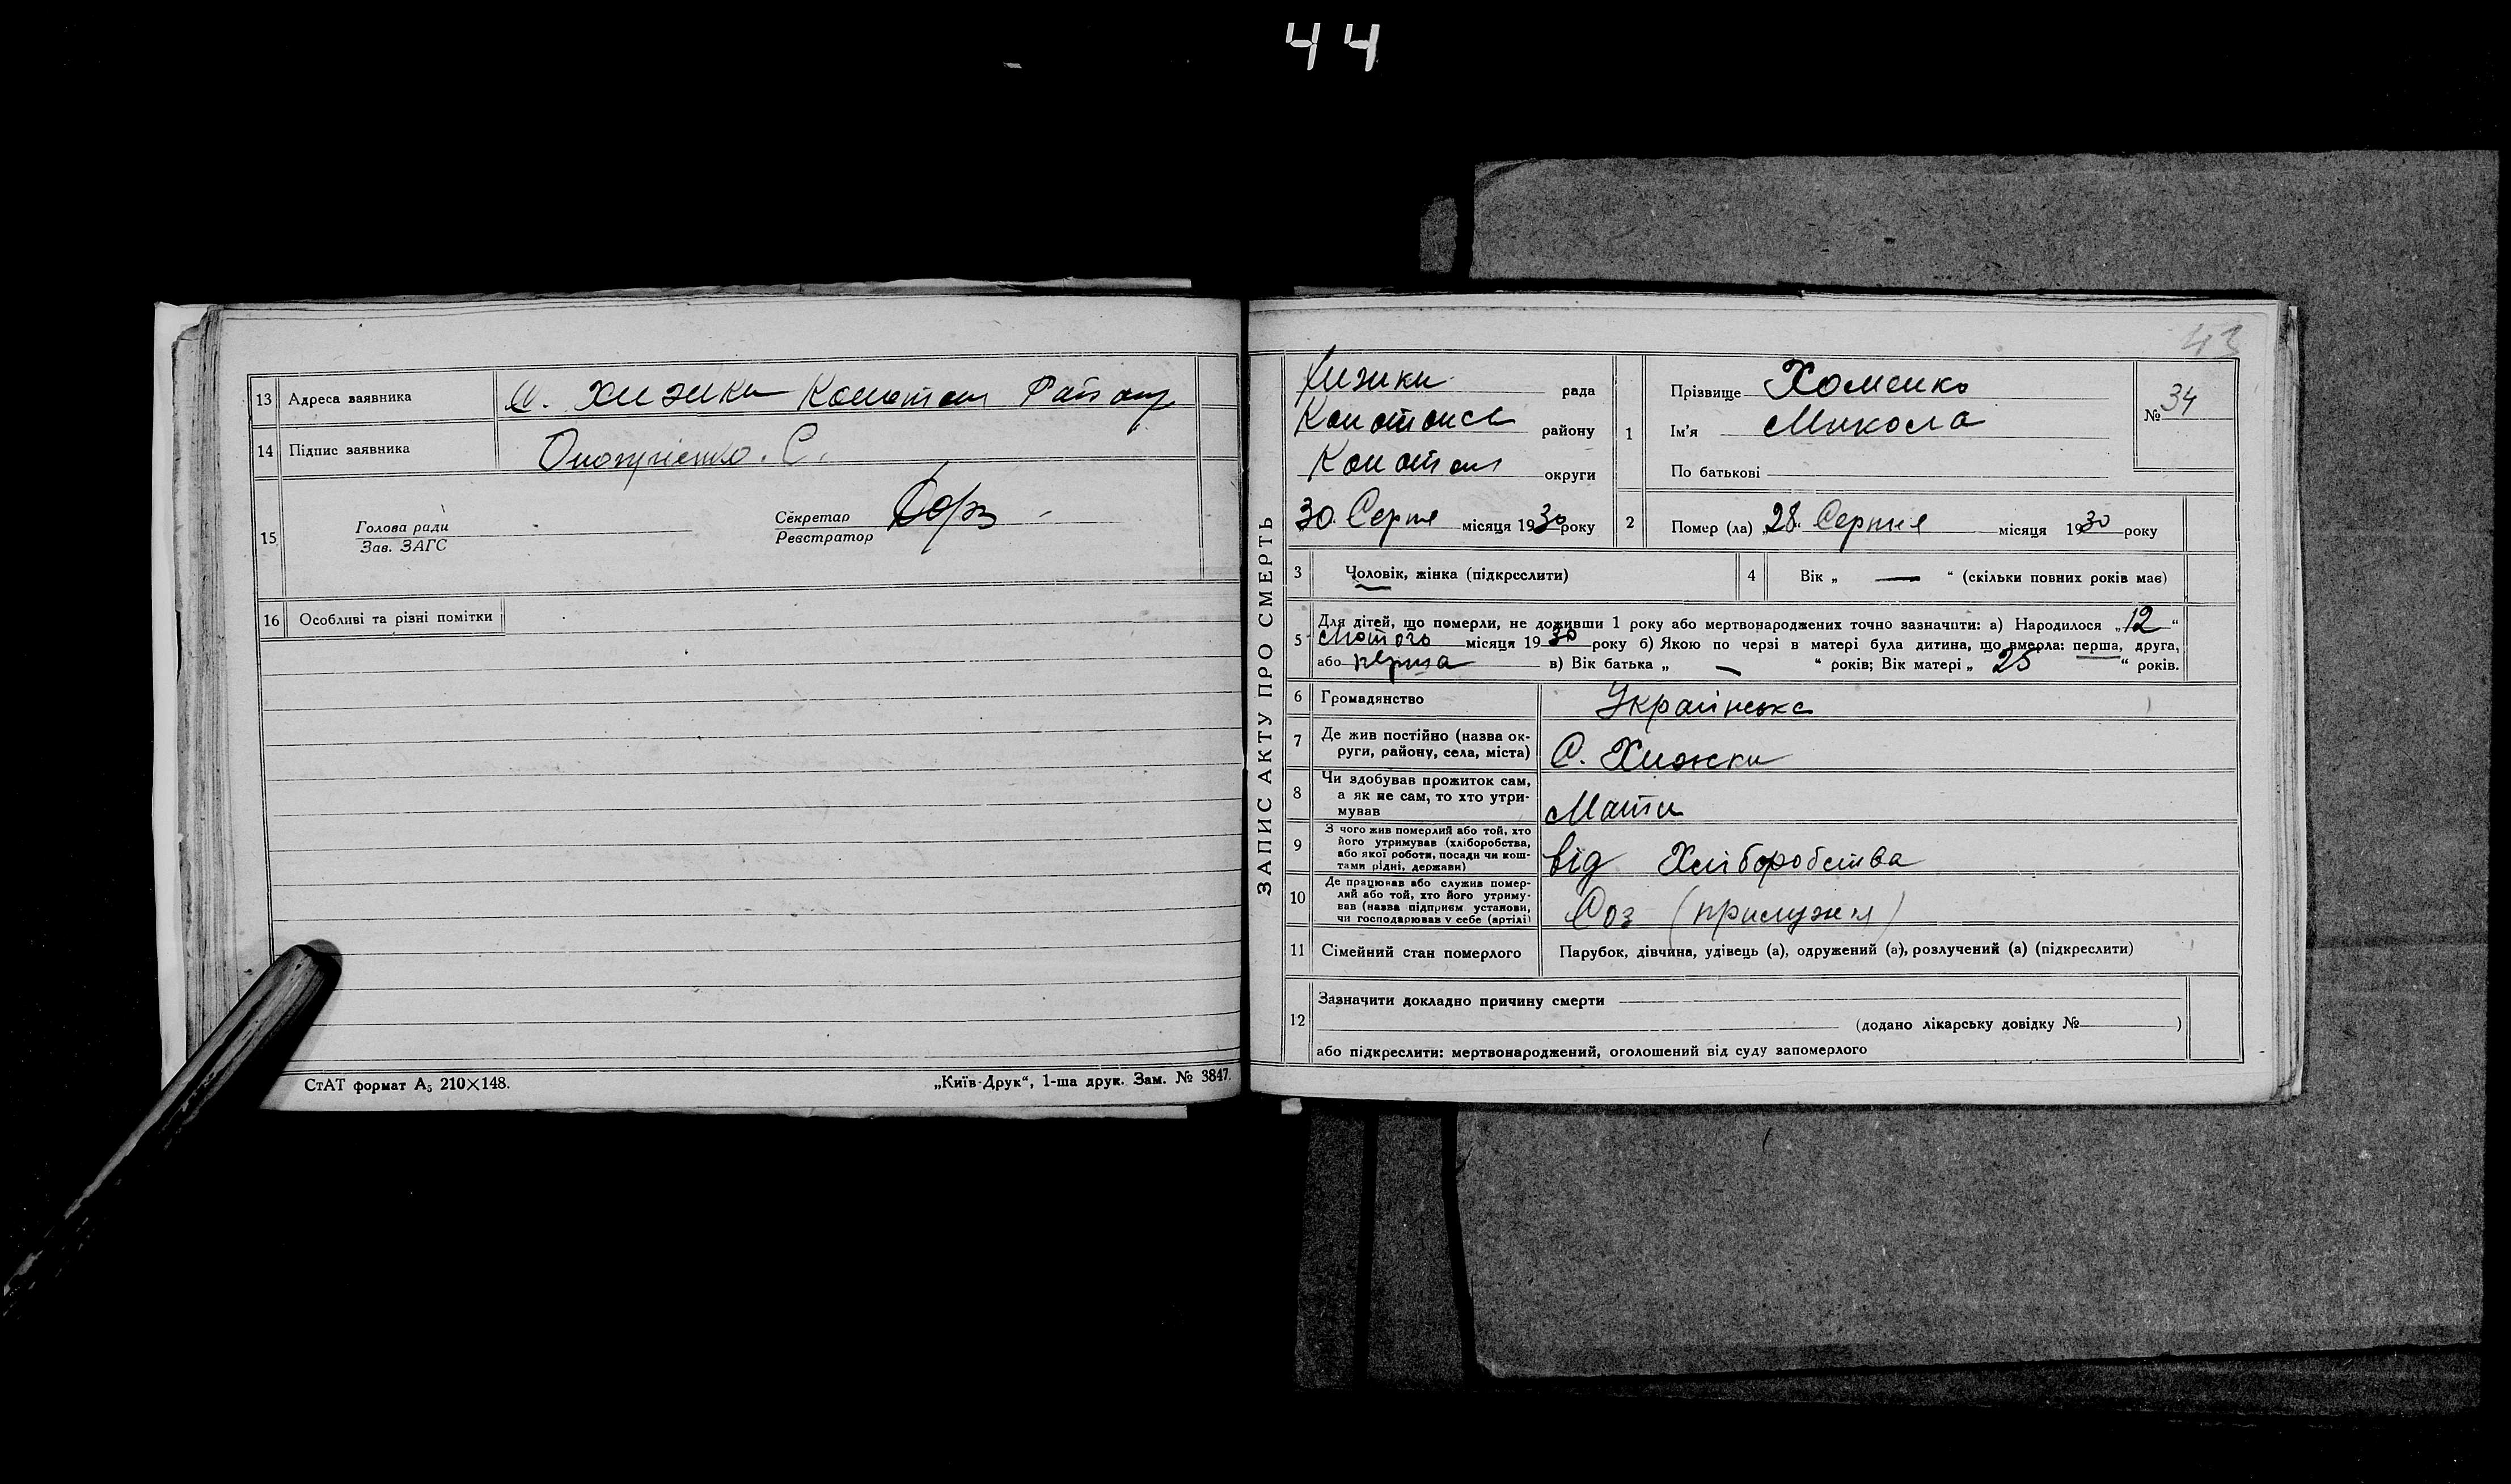 44
13 Адреса заявника С. Хижки Конотоп Району
14 Підпис заявника
15 Голова ради
Зав. ЗАГС
Секретар
Реєстратор
16 Особливі та різні помітки
СтАТ формат А₅ 210×148. „Київ-Друк“, 1-ша друк. Зам. № 3847.
43
ЗАПИС АКТУ ПРО СМЕРТЬ
Хижки рада
району
Конотоп округи
30 Серпня місяця 1930 року
1 Прізвище Хоменко
Ім'я Микола
По батькові
№ 34
2 Помер (ла) „28“ Серпня місяця 1930 року
3 Чоловік, жінка (підкреслити)
4 Вік „ — “ (скільки повних років має)
5 Для дітей, що померли, не доживши 1 року або мертвонароджених точно зазначити: а) Народилося „12“
Лютого місяця 1930 року б) Якою по черзі в матері була дитина, що вмерла: перша, друга,
або перша в) Вік батька „ — “ років; Вік матері „ 25 “ років.
6 Громадянство Українське
7 Де жив постійно (назва ок-
руги, району, села, міста) С. Хижки
8 Чи здобував прожиток сам,
а як не сам, то хто утри-
мував Мати
9 З чого жив померлий або той, хто
його утримував (хліборобства,
або якої роботи, посади чи кош-
тами рідні, держави) від Хліборобства
10 Де працював або служив помер-
лий або той, хто його утриму-
вав (назва підприєм установи,
чи господарював у себе (артілі) Соз
11 Сімейний стан померлого Парубок, дівчина, удівець (а), одружений (а), розлучений (а) (підкреслити)
12 Зазначити докладно причину смерти
(додано лікарську довідку № )
або підкреслити: мертвонароджений, оголошений від суду запомерлого